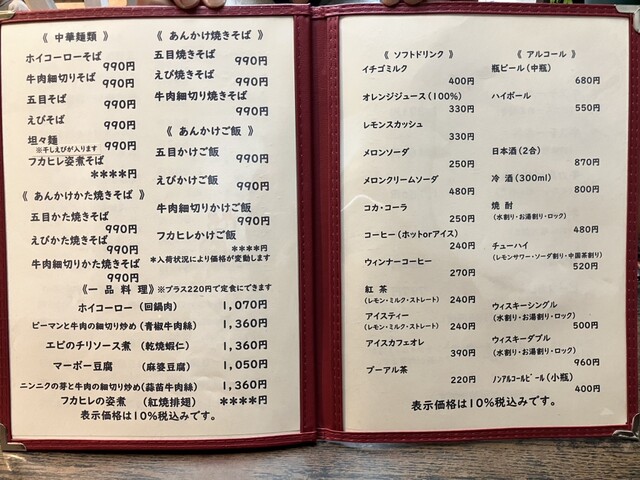 《 中華麺類 》
ホイコーローそば
990円
牛肉細切りそば
990円
五目そば
990円
えびそば
990円
坦々麺
※干しえびが入ります 990円
フカヒレ姿煮そば
****円
《 あんかけかた焼きそば 》
五目かた焼きそば
990円
えびかた焼きそば
990円
牛肉細切りかた焼きそば
990円
《 あんかけ焼きそば 》
五目焼きそば
990円
えび焼きそば
990円
牛肉細切り焼きそば
990円
《 あんかけご飯 》
五目かけご飯
990円
えびかけご飯
990円
牛肉細切りかけご飯
990円
フカヒレかけご飯
****円
*入荷状況により価格が変動します
《一 品 料 理》 ※プラス220円で定食にできます
ホイコーロー (回鍋肉) 1,070円
ピーマンと牛肉の細切り炒め (青椒牛肉絲) 1,360円
エビのチリソース煮 (乾焼蝦仁) 1,360円
マーボー豆腐 (麻婆豆腐) 1,050円
ニンニクの芽と牛肉の細切り炒め(蒜苗牛肉絲) 1,360円
フカヒレの姿煮 (紅焼排翅) ****円
表示価格は10%税込みです。
《 ソフトドリンク 》
イチゴミルク
400円
オレンジジュース(100%)
330円
レモンスカッシュ
330円
メロンソーダ
250円
メロンクリームソーダ
480円
コカ・コーラ
250円
コーヒー(ホットorアイス)
240円
ウィンナーコーヒー
270円
紅 茶
(レモン・ミルク・ストレート) 240円
アイスティー
(レモン・ミルク・ストレート) 240円
アイスカフェオレ
390円
プーアル茶
220円
《 アルコール 》
瓶ビール(中瓶)
680円
ハイボール
550円
日本酒(2合)
870円
冷 酒(300ml)
800円
焼 酎
(水割り・お湯割り・ロック)
480円
チューハイ
(レモンサワー・ソーダ割り・中国茶割り)
520円
ウィスキーシングル
(水割り・お湯割り・ロック)
500円
ウィスキーダブル
(水割り・お湯割り・ロック)
960円
ノンアルコールビール(小瓶)
400円
表示価格は10%税込みです。